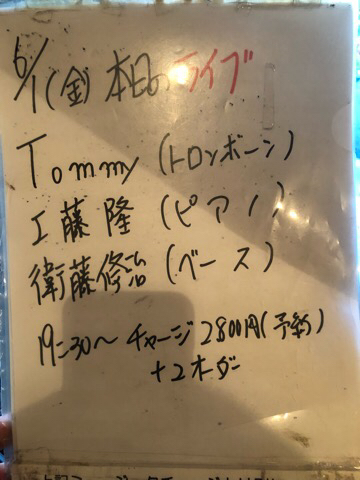 6/1(金)本日のライブ
Tommy(トロンボーン)
工藤隆(ピアノ)
衛藤修治(ベース)
19:30〜チャージ2800円(予約)
+2オーダー